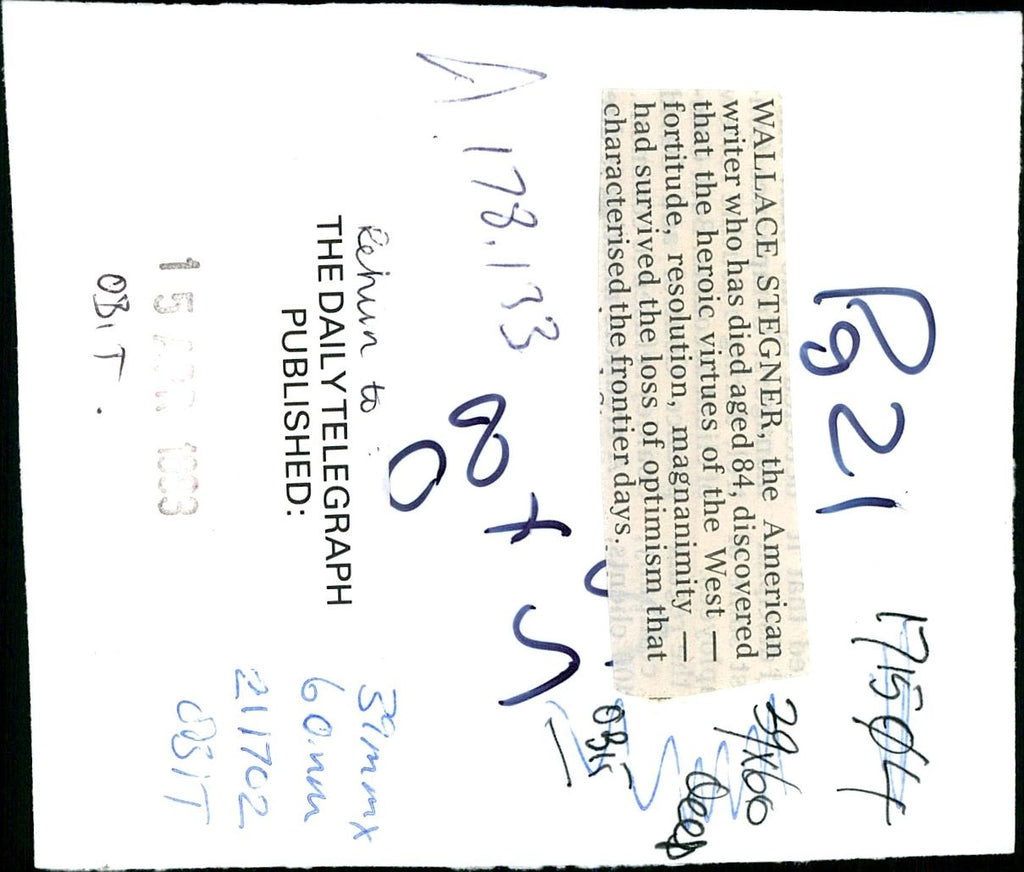 Pg 21
171504
WALLACE STEGNER, the American
writer who has died aged 84, discovered
that the heroic virtues of the West —
fortitude, resolution, magnanimity —
had survived the loss of optimism that
characterised the frontier days.
39x60
Deep
OBIT
178.133
8 x 5
Return to
THE DAILY TELEGRAPH
PUBLISHED:
39mm x
60mm
211702
OBIT
15 APR 1993
OBIT.